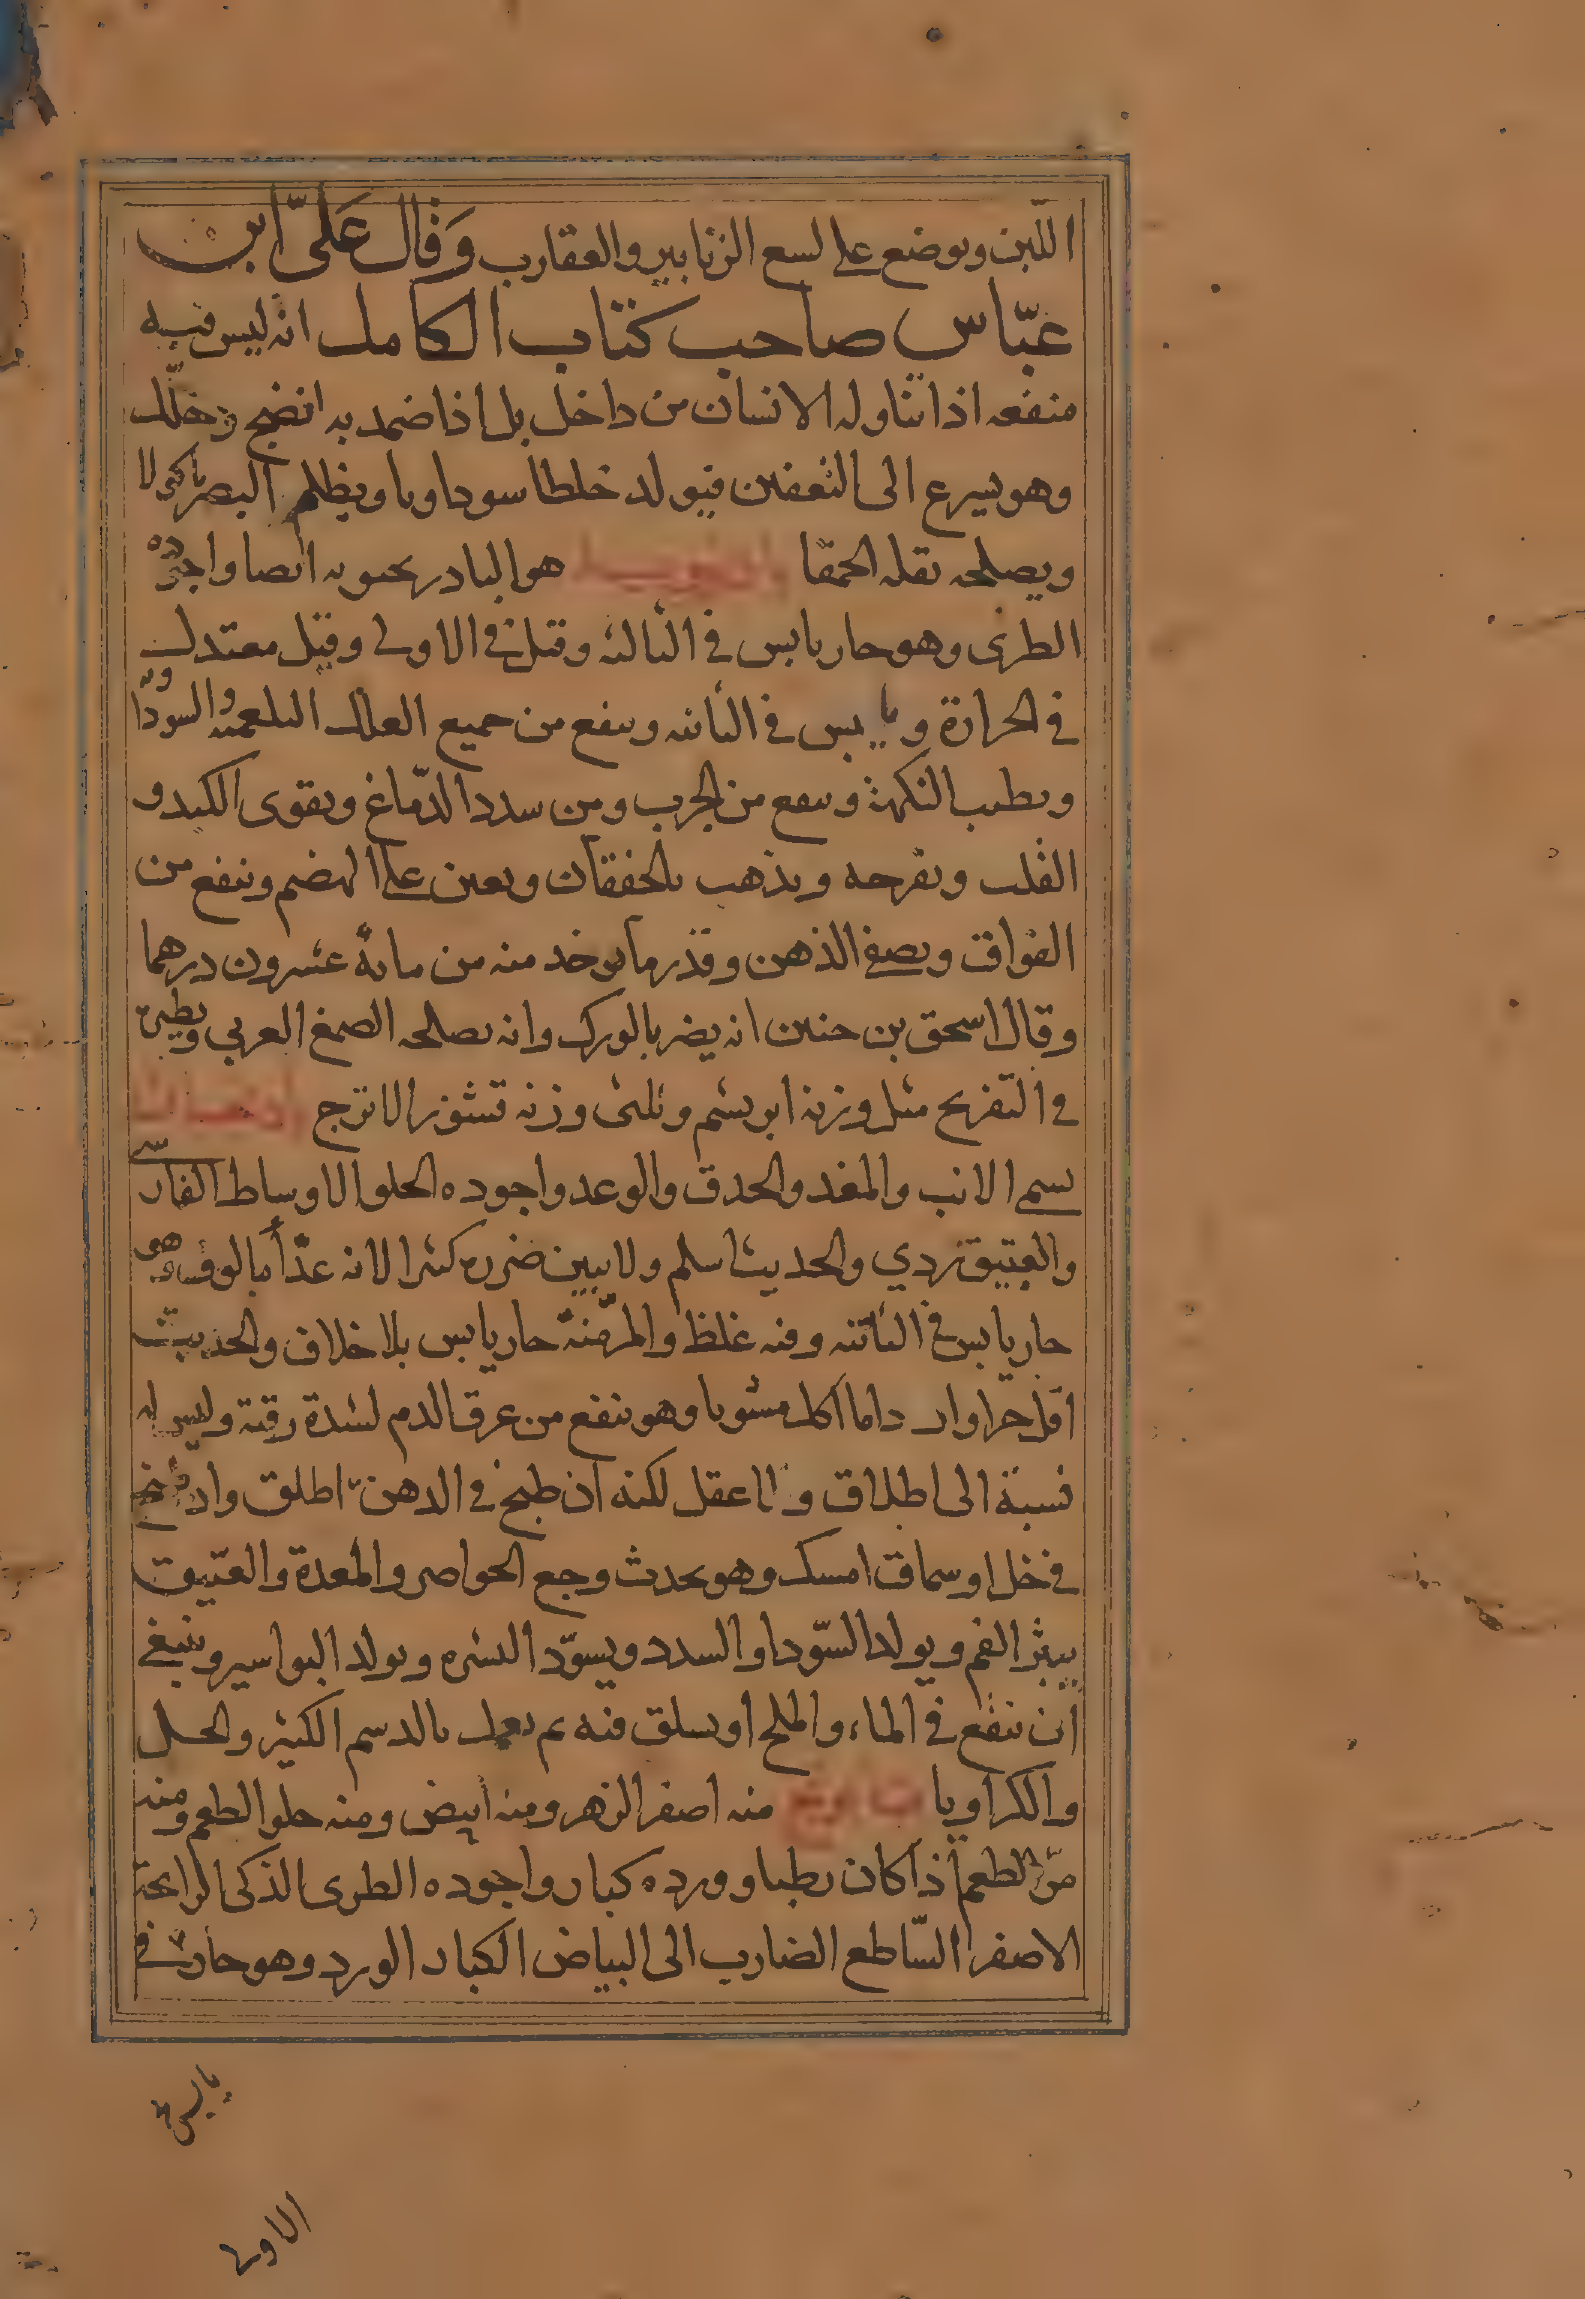 اللبن ويوضع على لسع الزنابير والعقارب وَقال عَلىّ ابن
عبّاس صاحب كتاب الكامل انه ليس فيه
منفعه اذا تناوله الانسان من داخل بل اذا ضمد به انضج وحلّل
وهو يسرع الى التعفين فيولد خلطا سوداويا ويظلم البصر باكله لا
ويصلحه بقله الحمقا هو البادرنجبويه ايضا واجوده
الطرى وهو حار يابس في الثالثه وقيل في الاولى وقيل معتدل
في الحرارة ويابس في الثانيه وينفع من جميع العلل البلغميه والسوداويه
ويطيب النكهة وينفع من الجرب ومن سدد الدّماغ ويقوى الكبد و
القلب ويفرحه ويذهب بالخفقان ويعين على الهضم وينفع من
الفواق ويصفى الذهن وقدر ما يوخد منه من مائة عشرون درهما
وقال اسحق بن حنين انه يضر بالورك وانه يصلحه الصمغ العربي ونظيره
في التفريح مثل وزنه ابريشم وثلثى وزنه قشور الاترج
يسمى الانب والمغد والحدق والوغد واجوده الحلو الاوساط الفارسى
والعتيق ردي والحديث اسلم ولا يبين ضرره كثيرا لانه غذا مالوف وهو
حار يابس في الثانيه وفيه غلظ والمرّ منه حار يابس بلا خلاف والحديث
اقل حرا واردا ما اكل مشويا وهو ينفع من عرق الدم لشدة رقته وليس له
نسبة الى اطلاق ولا عقل لكنه ان طبخ في الدهن اطلق وان طبخ
في خل او سماق امسك وهو يحدث وجع الخواصر والمعدة والعتيق
يبثر الفم ويولد السّودا والسدد ويسوّد البشره ويولد البواسير وينبغي
ان ينقع في الماء والملح او يسلق فيه ثم يعمل بالدسم الكثير والخل
والكراويا منه اصفر الزهر ومنه ابيض ومنه حلو الطعم ومنه
مرّ الطعم اذا كان رطبا وورده كبار واجوده الطرى الذكى الرايحة
الاصفر السّاطع الضارب الى البياض الكبار الورد وهو حار في
يابس
الاولى